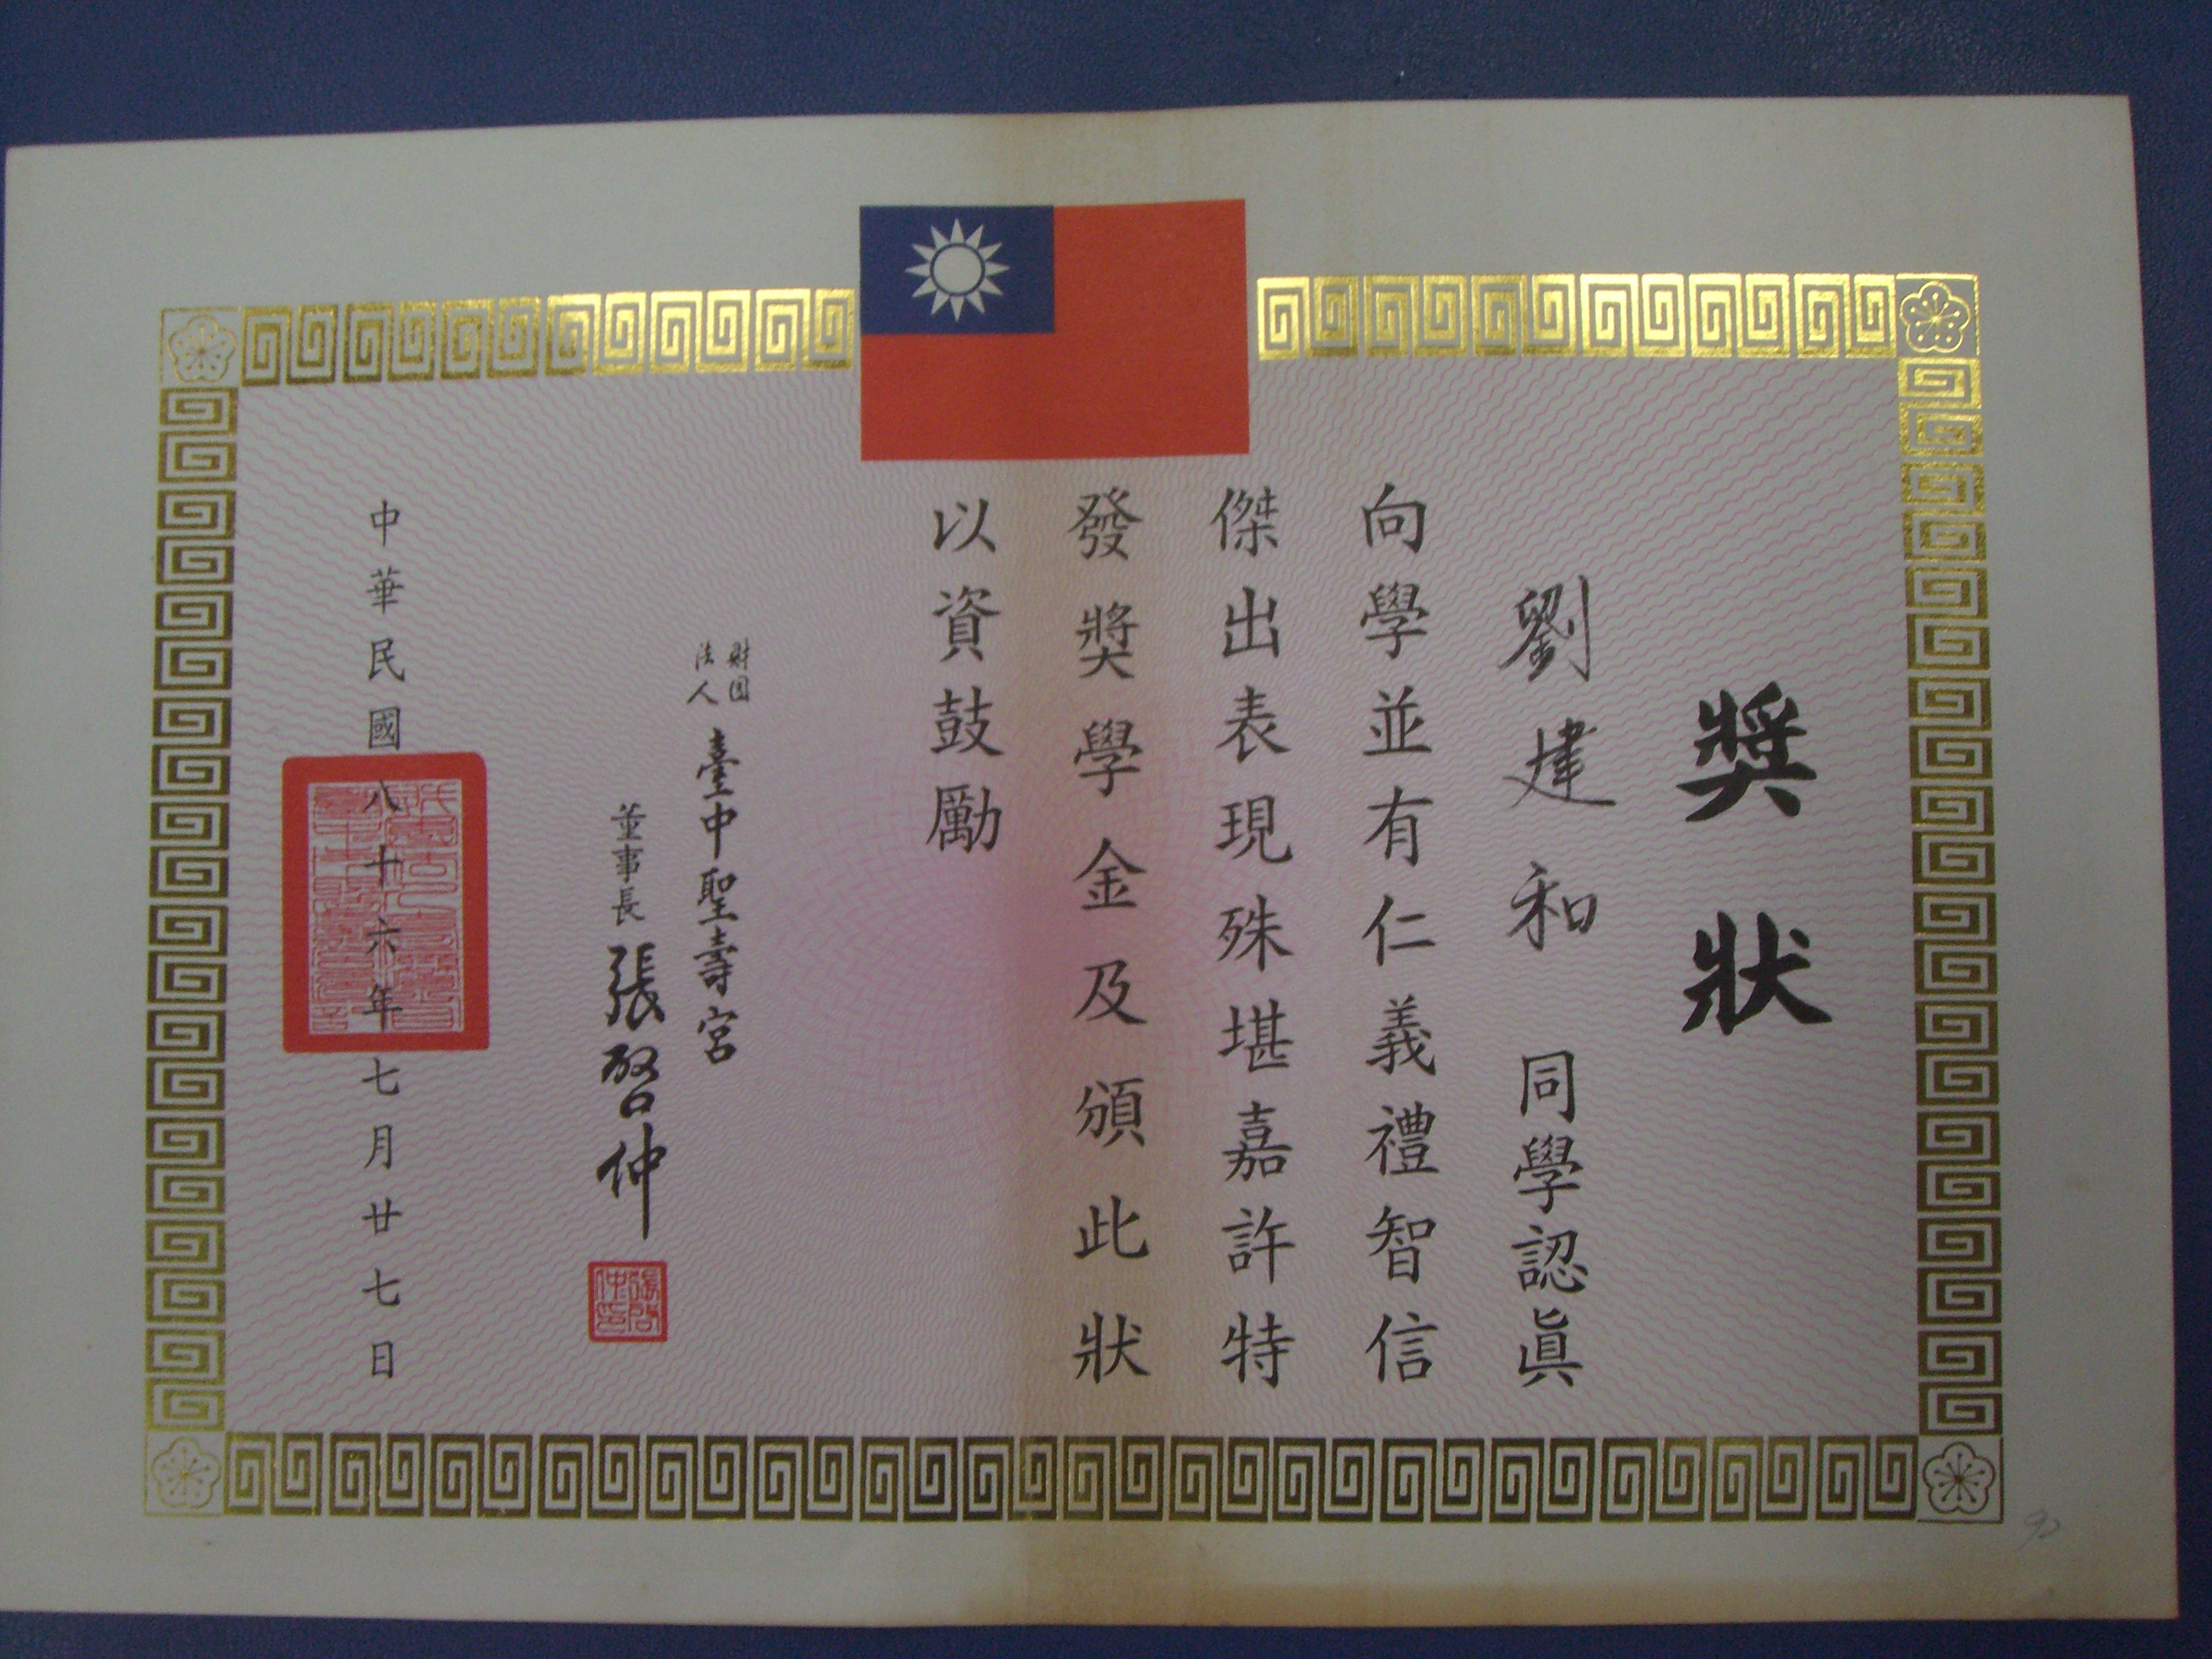 獎狀
劉建和 同學認眞
向學並有仁義禮智信
傑出表現殊堪嘉許特
發獎學金及頒此狀
以資鼓勵
財團
法人
臺中聖壽宮
董事長 張啓仲
張啓
仲印
中華民國八十六年七月廿七日
92